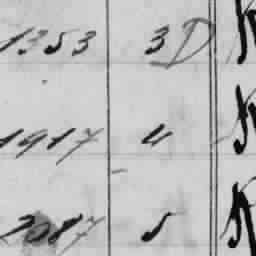 1353 3D
1917 4
2087 5